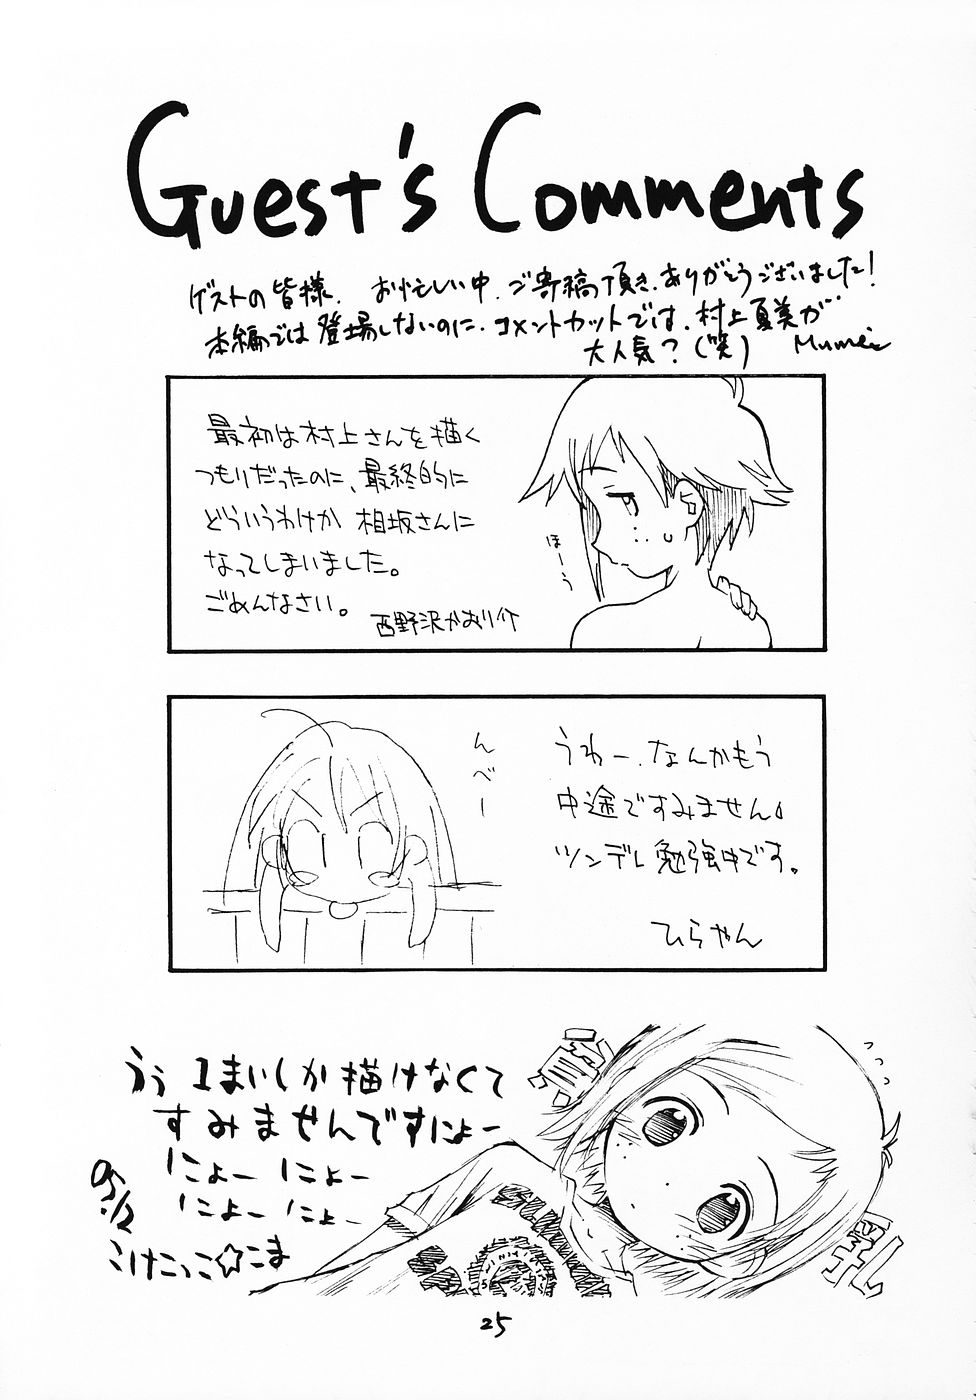 Guest's Comments
ゲストの皆様、お忙しい中、ご寄稿頂き、ありがとうございました!
本編では登場しないのに、コメントカットでは、村上夏美が…
大人気?(笑) Mumei
最初は村上さんを描く
つもりだったのに、最終的に
どういうわけか相坂さんに
なってしまいました。
ごめんなさい。
西野沢かおり介
ほーう
んべー
うわー、なんかもう
中途ですみません。
ツンデレ勉強中です。
ひらやん
うぅ 1まいしか描けなくて
すみませんですにょー
にょー にょー
にょー にょー
05.12
こけこっこ☆こま
25